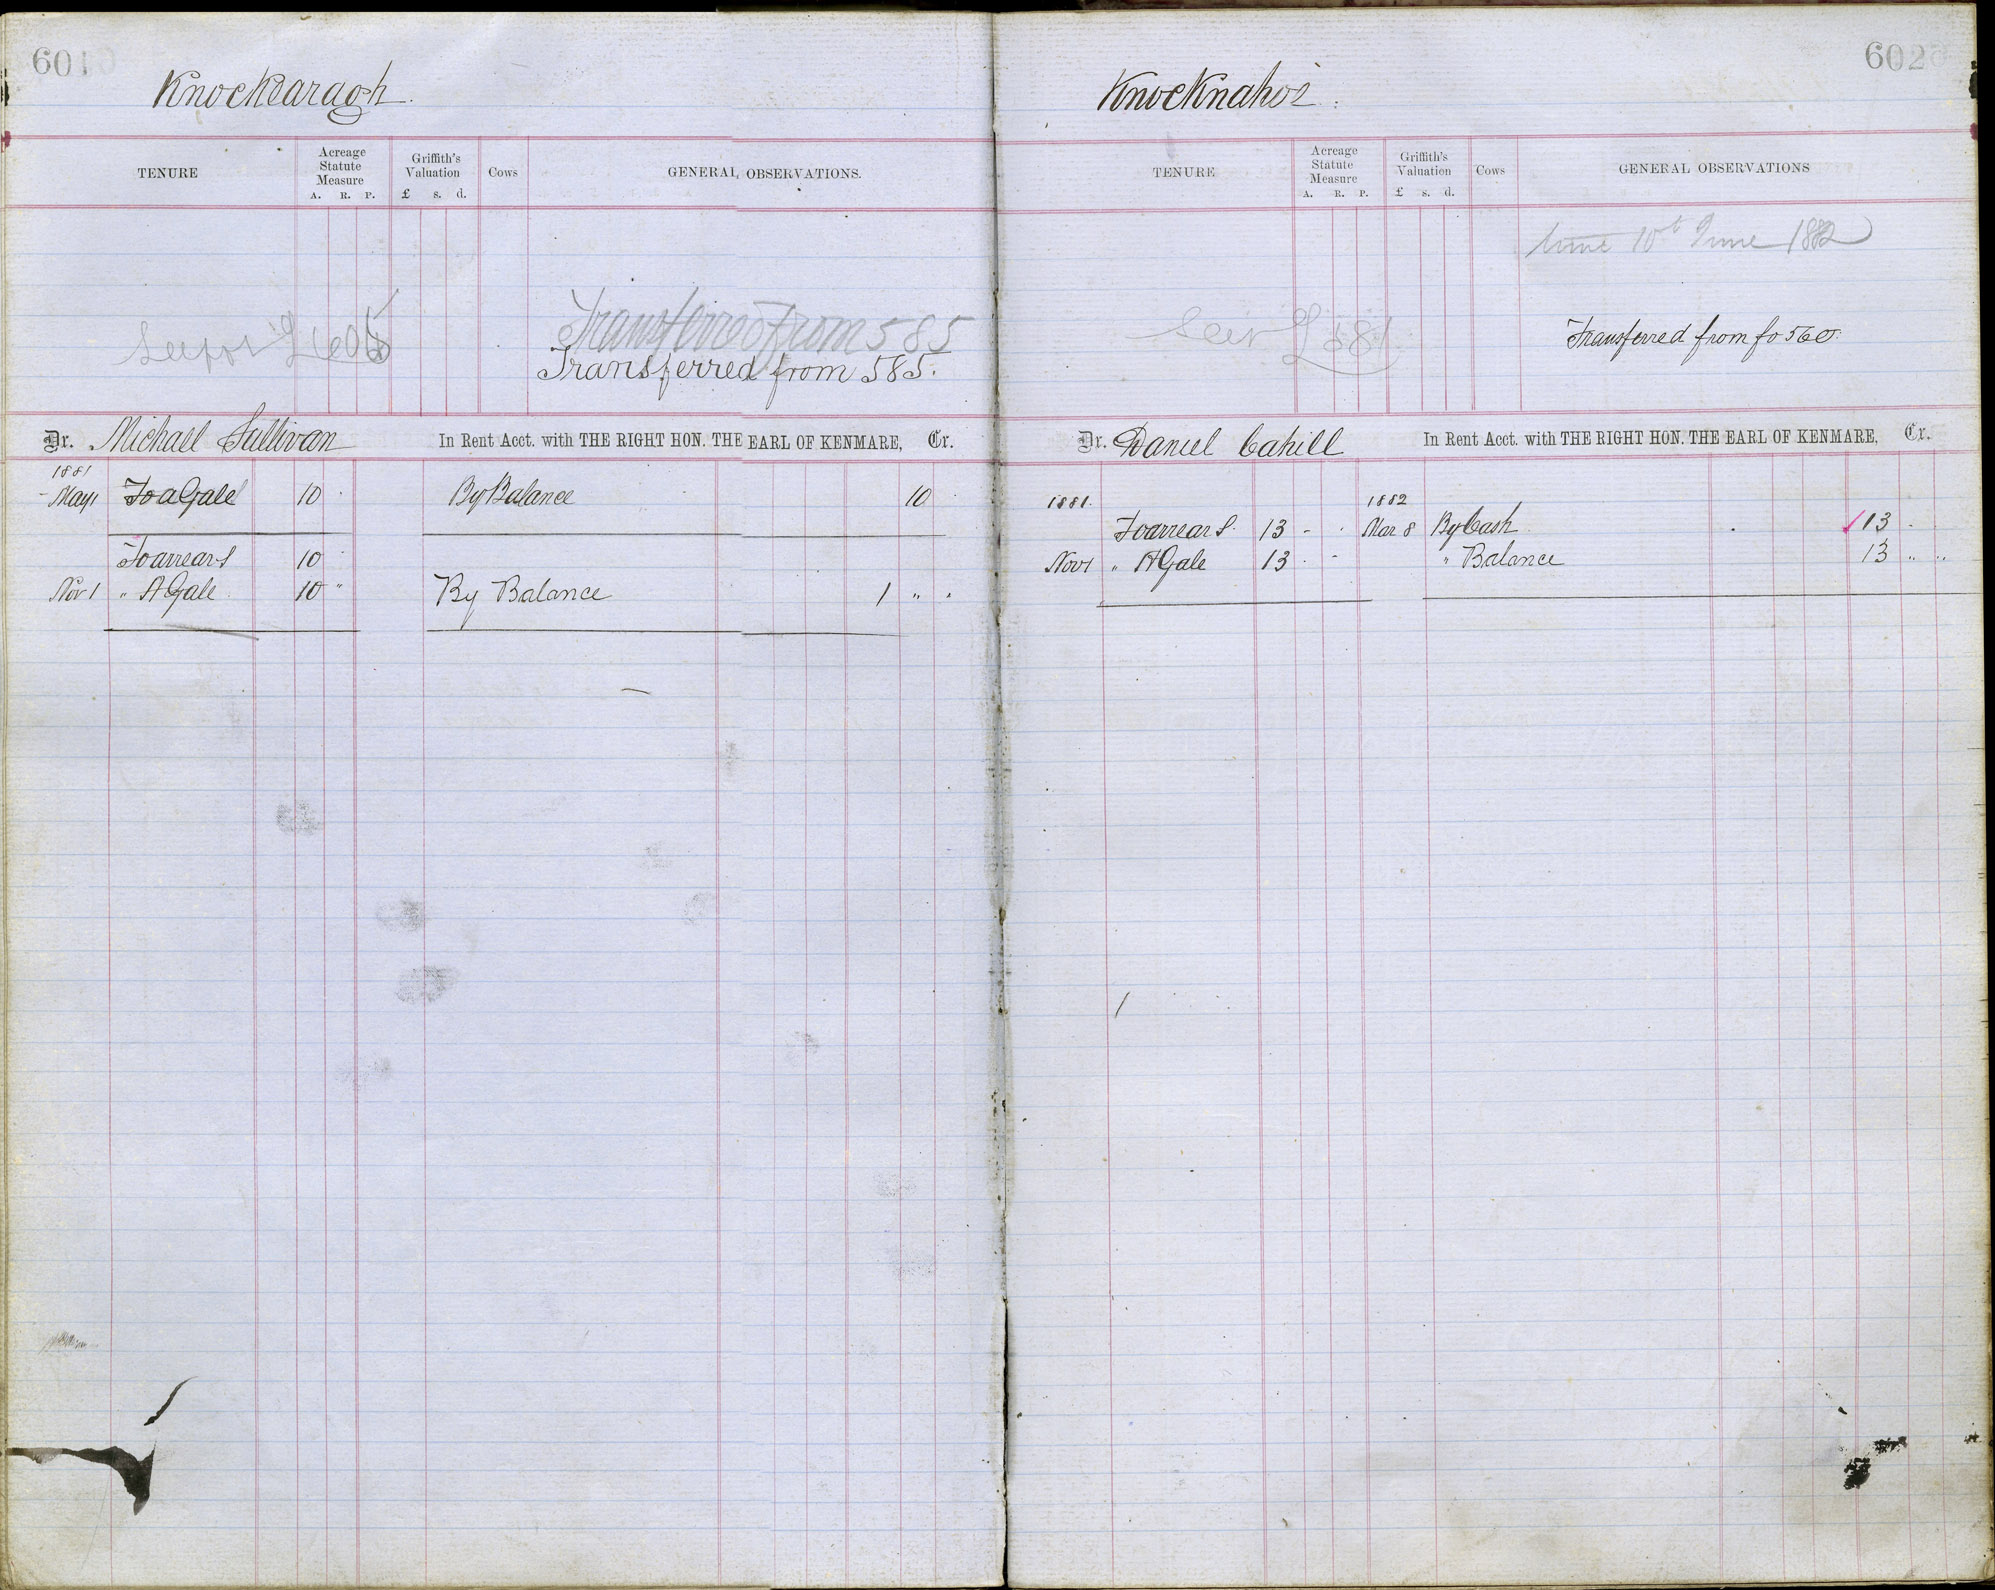 601
Knockearagh.
TENURE
Acreage Statute Measure
A. R. P.
Griffith's Valuation
£ s. d.
Cows
GENERAL OBSERVATIONS.
Transferred from 585
Transferred from 585.
Dr. Michael Sullivan In Rent Acct. with THE RIGHT HON. THE EARL OF KENMARE, Cr.
1881
May 1 To a Gale 10 By Balance 10
To arrears 10
Nov 1 " A Gale 10 " By Balance 1 " "
602
TENURE
Acreage Statute Measure
A. R. P.
Griffith's Valuation
£ s. d.
Cows
GENERAL OBSERVATIONS
time 10t June 1882
Transferred from fo 560.
Dr. Daniel Cahill In Rent Acct. with THE RIGHT HON. THE EARL OF KENMARE, Cr.
1881. 1882
To arrears. 13 - Mar 8 By Cash 13 -
Nov 1 " A Gale 13 - " Balance 13 " "